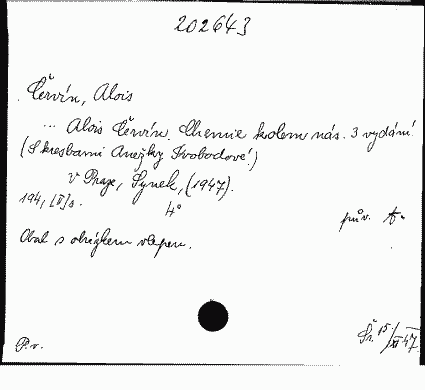 202643
Červín, Alois
... Alois Červín. Chemie kolem nás. 3 vydání.
(S kresbami Anežky Svobodové)
v Praze, Synek, (1947).
194, [II] s.
4°
pův.
Obal s obrázkem vlepen.
P. v.
Sr. 15/XI 47